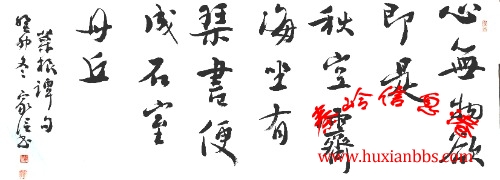 心無物欲
即是
秋空霽
海坐有
琴書便
成石室
丹丘
菜根譚句
家住書
www.huxianbbs.com